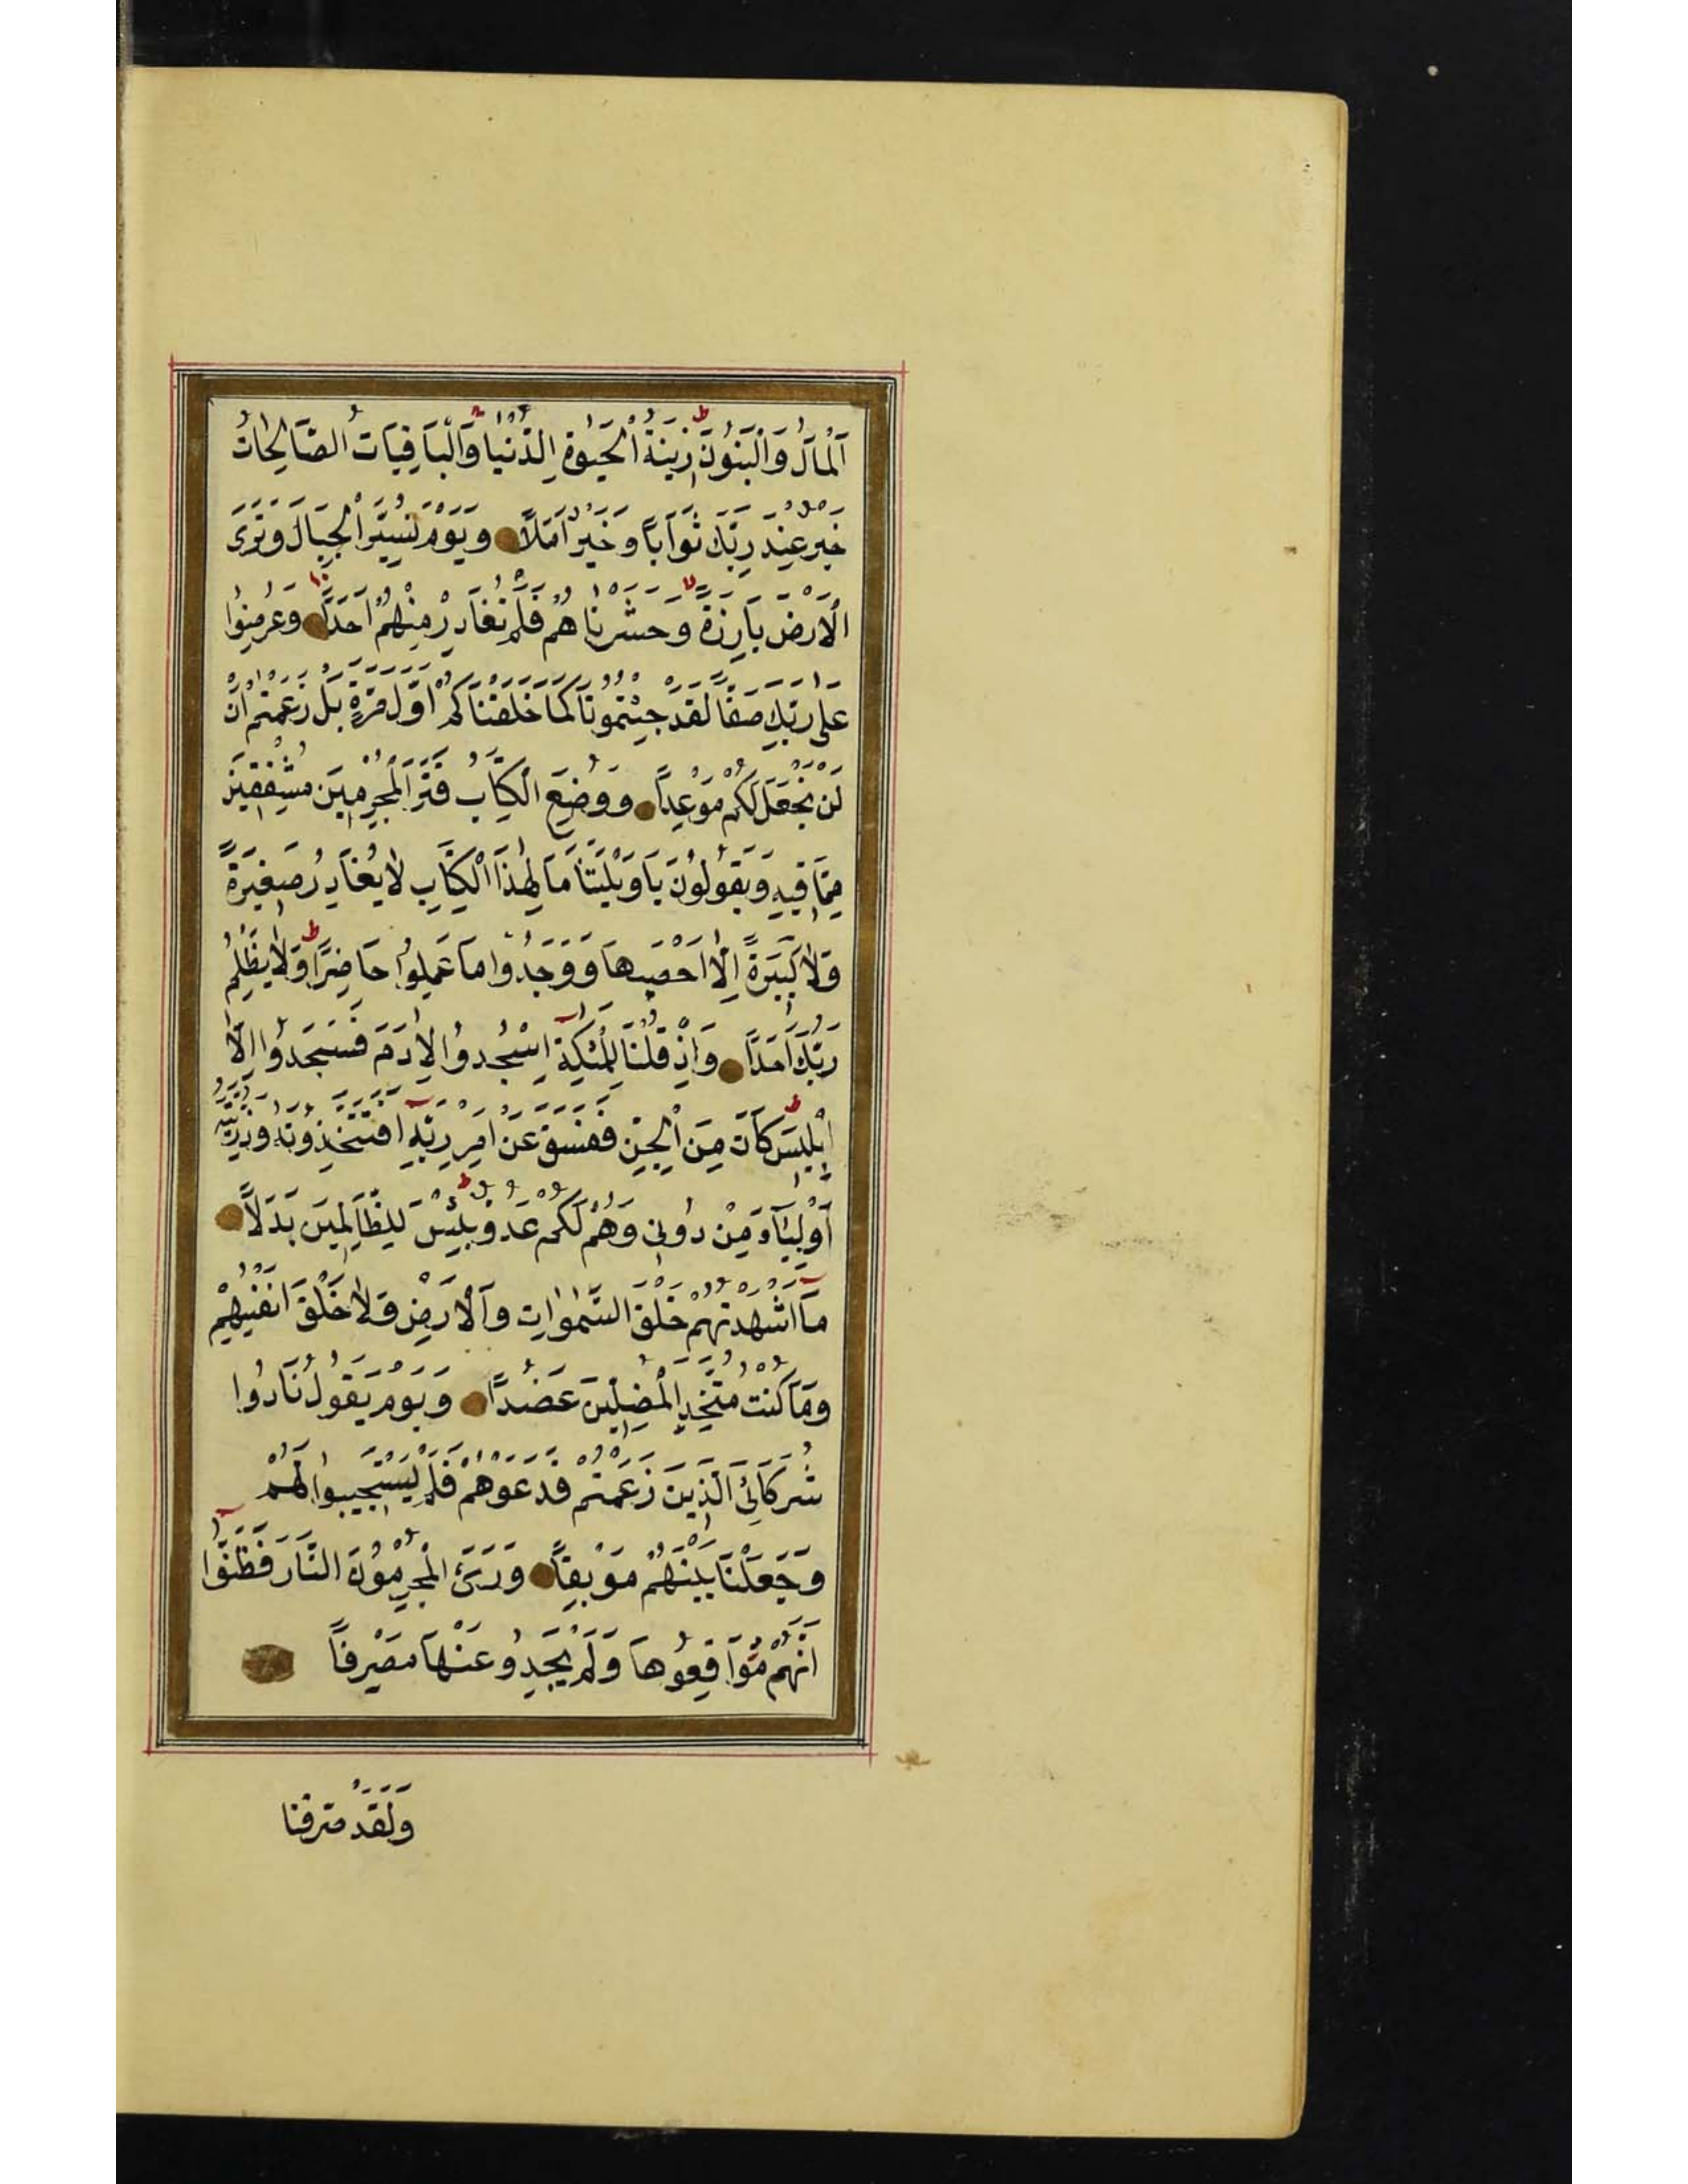 اَلْمَالُ وَالْبَنُونَ زِينَةُ الْحَيٰوةِ الدُّنْيَا وَالْبَاقِيَاتُ الصَّالِحَاتُ
خَيْرٌ عِنْدَ رَبِّكَ ثَوَابًا وَخَيْرٌ اَمَلًا وَيَوْمَ نُسَيِّرُ الْجِبَالَ وَتَرَى
الْاَرْضَ بَارِزَةً وَحَشَرْنَاهُمْ فَلَمْ نُغَادِرْ مِنْهُمْ اَحَدًا وَعُرِضُوا
عَلٰى رَبِّكَ صَفًّا لَقَدْ جِئْتُمُونَا كَمَا خَلَقْنَاكُمْ اَوَّلَ مَرَّةٍ بَلْ زَعَمْتُمْ اَنْ
لَنْ نَجْعَلَ لَكُمْ مَوْعِدًا وَوُضِعَ الْكِتَابُ فَتَرَى الْمُجْرِمِينَ مُشْفِقِينَ
مِمَّا فِيهِ وَيَقُولُونَ يَا وَيْلَتَنَا مَا لِهٰذَا الْكِتَابِ لَا يُغَادِرُ صَغِيرَةً
وَلَا كَبِيرَةً اِلَّا اَحْصٰيهَا وَوَجَدُوا مَا عَمِلُوا حَاضِرًا وَلَا يَظْلِمُ
رَبُّكَ اَحَدًا وَاِذْ قُلْنَا لِلْمَلٰئِكَةِ اسْجُدُوا لِاٰدَمَ فَسَجَدُوا اِلَّا
اِبْلِيسَ كَانَ مِنَ الْجِنِّ فَفَسَقَ عَنْ اَمْرِ رَبِّهِ اَفَتَتَّخِذُونَهُ وَذُرِّيَّتَهُ
اَوْلِيَاءَ مِنْ دُونِي وَهُمْ لَكُمْ عَدُوٌّ بِئْسَ لِلظَّالِمِينَ بَدَلًا
مَا اَشْهَدْتُهُمْ خَلْقَ السَّمٰوَاتِ وَالْاَرْضِ وَلَا خَلْقَ اَنْفُسِهِمْ
وَمَا كُنْتُ مُتَّخِذَ الْمُضِلِّينَ عَضُدًا وَيَوْمَ يَقُولُ نَادُوا
شُرَكَائِيَ الَّذِينَ زَعَمْتُمْ فَدَعَوْهُمْ فَلَمْ يَسْتَجِيبُوا لَهُمْ
وَجَعَلْنَا بَيْنَهُمْ مَوْبِقًا وَرَءَى الْمُجْرِمُونَ النَّارَ فَظَنُّوا
اَنَّهُمْ مُوَاقِعُوهَا وَلَمْ يَجِدُو عَنْهَا مَصْرِفًا
وَلَقَدْ صَرَّفْنَا